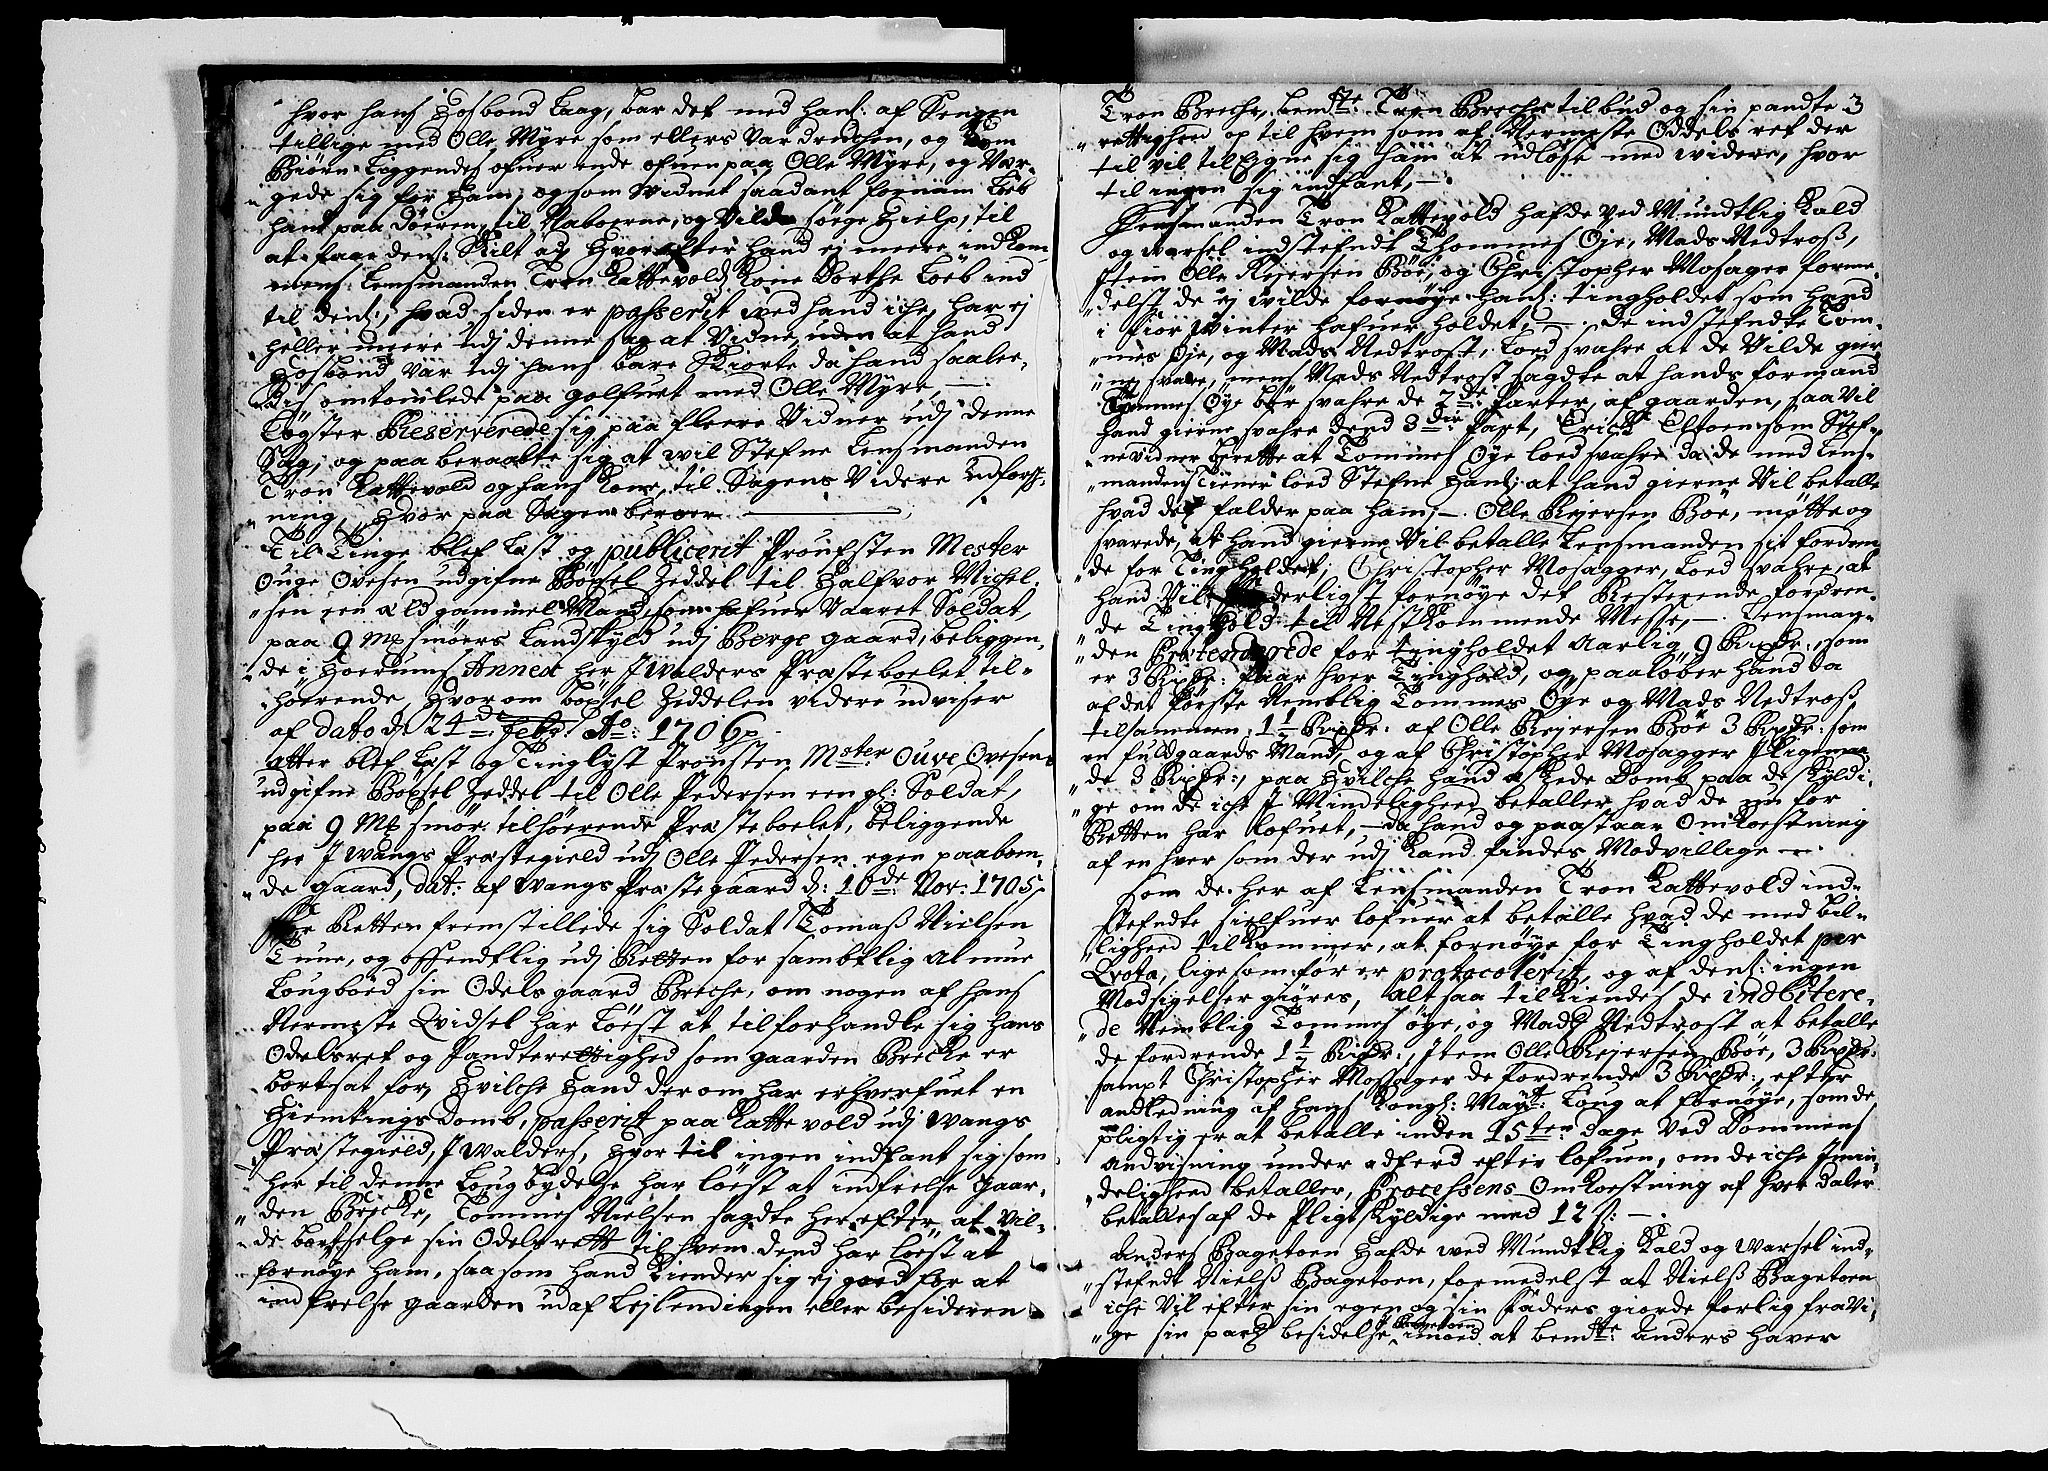 hvor hans Hosbond Laag, bar det med hans: af Sengen
tillige med Olle Myre som ellers var druchen, og kom
Biørn Liggendes ofuer ende ofuen paa Olle Myre, og Vær-
gede sig for Ham, og som Vidnet saadant fornam Løb
hant paa døeren, til Naboerne, og Vilde søege Hielp, til
at faae dem: skilt ad, Hvor efter hand ej meere indkom
mens: Lensmanden Tron Kattevolds Kone Dorthe Løeb ind
til dem:, hvad siden er passerit wed hand iche, har ej
heller meere udj denne sag at Vidne, uden at hand
Hosbond var udj hans bare Skiorte da hand saalee-
des omtomlede paa golfuet med Olle Myre, —
Togster Reserverede sig paa fleere Vidner udj denne
Sag, og paa beraabte sig at wil Stefne Lensmanden
Tron Kattevold og hans Kone, til Sagens Videre Udførs-
ning, Hvor paa Sagen beroer —
Til Tinge blef Læst og publicerit Proufsten Mester
Ouge Ovesen udgifne Bøxsel Zeddel til Halfvor Michel-
sen een æld gammel Mand, som hafuer Vaaret Soldat,
paa 9 Mrk smøers Landskyld udj Berge gaard, beliggen-
de i Hoerums Annex her J Walders Præsteboelet til-
hørende, Hvor om bøxsel Zeddelen videre udviser
af dato d. 24de Febr: Ao: 1706
atter blef Læst og Tinglyst Prousten Mster Ouve Ovesens
udgifne Bøxsel Zeddel til Olle Pedersen een gl: Soldat,
paa 9 Mrk smør tilhøerende Præsteboelet, beliggende
her J Wangs Præstegield udj Olle Pedersen egen paaboen-
de gaard, dat: af Wangs Præstegaard d: 10de Nov: 1705
For Retten fremstillede sig Soldat Tomaß Nielsen
Tune, og offendtlig udj Retten for sambtlig almue
Lougbøed sin Odels gaard Breche, om nogen af hans
Nermeste Qvidsel har Løest at tilforhandle sig hans
Odelsret og Panderettighed som gaarden Brecke er
bortsat for, Hvilche Hand der om har erhverfuet en
Hiemtings Domb, passerit paa Kattevold udj Wangs
Præstegield, J Walders, Hvor til ingen indfant sig som
her til denne Lougbydelse har Løest at indfrelse gaar-
den Brecke, Tommes Nielsen sagdte her efter, at vil-
de bortselge sin Odelsrett til hvem dend har løest at
fornøye ham, saa som hand kiender sig ej goed for at
indfrelse gaarden ud af Lejlendingen eller besideren
Tron Breche, bemte Tron Breches tilbud og sin pandte 3
rettighed op til hvem som af Nermeste Oddels ret der
til vil til Egne sig ham at udløse med widere, hvor
til ingen sig indfant, —
Lensmanden Tron Kattevold hafde Ved Mundtlig Kald
og warsel indstefndt Thommes Øje, Mads Nedtroß,
Item Olle Rejersen Böe, og Christopher Mosager forme-
delst de ej wilde fornøye hans: tingholdet som hand
i fiør winter hafuer holdet, — de indstefndte Tom-
mes Øje, og Mads Nedtrost, Loed svahre at de Vilde ger-
ne svare, mens Mads Nedtrost sagdte at hands formand
Tommes Øye bør svahre de 2de Parter, af gaarden, saa Vil
hand gierne svahre dend 3die Part, Erick som Stef-
nevidner berette at Tommes Øye loed svahre da de med Lens-
mandens tiener loed Stefne hans: at hand gierne Vil betalle
hvad det falder paa ham, —. Olle Rejersen Böe, møtte og
svarede, at hand gierne Vil betalle Lensmanden sit fordren-
de for Tingholdet, Christopher Mosagger, Loed svahre, at
hand Vil derligst fornøye det Resterende fordren-
de Tinghold til Nestkommende Messe, — Lensman-
den Prætenderede for tingholdet Aarlig 9 Rixdr:, som
er 3 Rixdr: Paar hver Tinghold, og paaløber hand da
af det første Nemblig Tommes Øye og Mads Nedtroß
tilsammen 1½ Rixdr: af Olle Rejersen Böe 3 Rixdr: som
en fuldgaards Mand, og af Christopher Mosagger Ligemaa-
de 3 Rixdr:, paa Hvilche hand æskede Domb paa de skyldi-
ge om de iche J Mindelighed betaller hvad de nu for
Retten har lofuet, — da hand og paastaar Omkoestning
af en hver som der udj kand findes Modvillige —
Som de her af Lensmanden Tron Kattevold ind-
stefndte sielfuer lofuer at betalle hvad de med bil-
lighed tilkommer, at fornøye for Tingholdet per
Qvota, lige som før er protocolerit, og af dem: ingen
Modsigelser giøres, Alt saa tilkiendes de indCitere-
de Nemblig Tommes øye, og Mads Nedtrost at betalle
de fordrende 1½ Rixdr:, Item Olle Rejersen Böe, 3 Rixdr:
sampt Christopher Mosager de Fordrende 3 Rixdr:, efter
andledning af hans Kongl: Mayts: Loug at fornøye, som de
pligtig er at betalle inden 15ten dage Ved Dommens
Andvisning under adferd efter lofuen, om de iche J min-
delighed betaller, Processens Omkoestning af hver daler
betalles af de Pligtskyldige med 12 s: —
Anders Bagetoen Hafde wed Mundtlig Kald og warsel ind-
stefndt Nielß Bagetoen, formedelst at Nielß Bagetoen
iche Vil efter sin egen og sin Faders giorde forlig fravi-
ge sin part besidelse J Bagetoen imoed at bemte: Anders haver